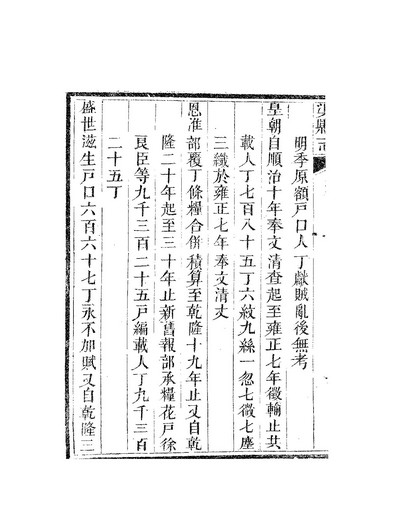 渠縣志
明季原額戸口人丁獻賊亂後無考
皇朝自順治十年奉文清查起至雍正七年徵輸止共
載人丁七百八十五丁六紋九絲一忽七微七塵
三纖於雍正七年奉文清丈
恩准部覆丁條糧合併積算至乾隆十九年止又自乾
隆二十年起至三十年止新舊報部承糧花戸徐
良臣等九千三百二十五戸編載人丁九千三百
二十五丁
盛世滋生戸口六百六十七丁永不加賦又自乾隆三